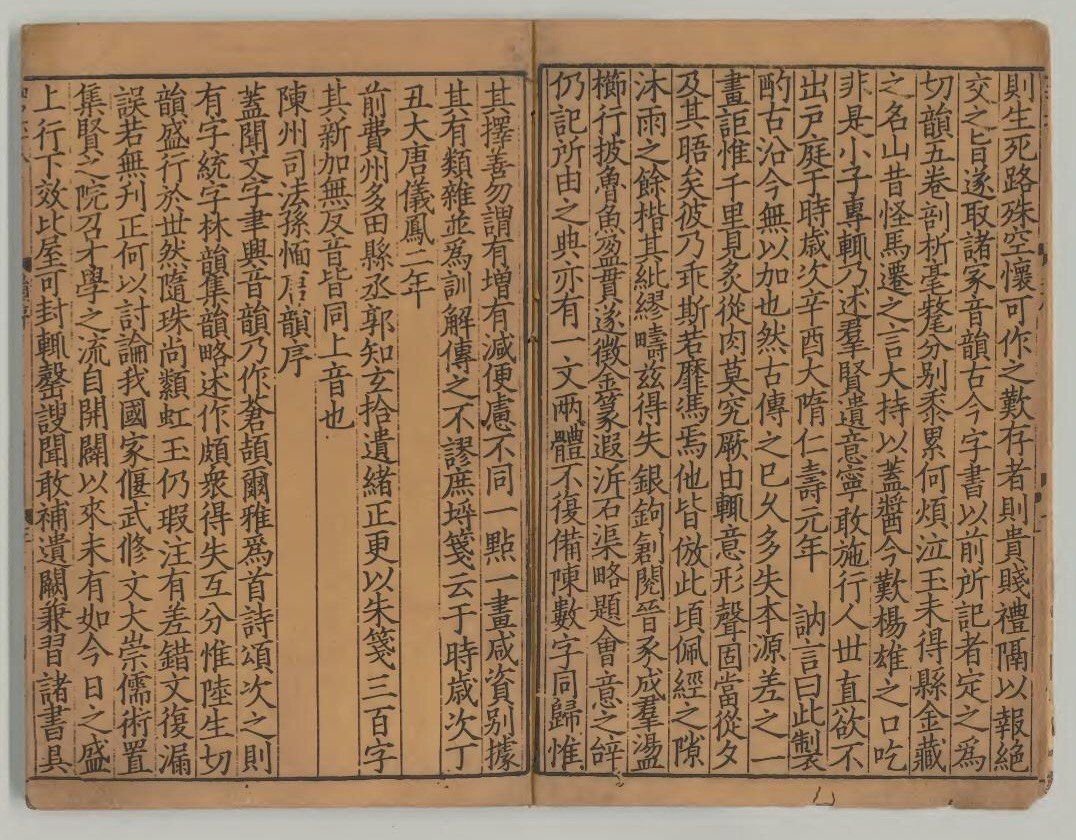 則生死路殊空懷可作之歎存者則貴賤禮隔以報絕
交之旨遂取諸家音韻古今字書以前所記者定之爲
切韻五卷剖析毫氂分別黍累何煩泣玉未得縣金藏
之名山昔怪馬遷之言大持以蓋醬今歎楊雄之口吃
非是小子專輒乃述羣賢遺意寧敢施行人世直欲不
出戸庭于時歲次辛酉大隋仁壽元年　訥言曰此製
酌古沿今無以加也然古傳之已久多失本源差之一
畫詎惟千里見炙從肉莫究厥由輒意形聲固當從夕
及其晤矣彼乃乖斯若靡馮焉他皆倣此頃佩經之隙
沐雨之餘楷其紕繆疇茲得失銀鉤創閱晉豕成羣盪
櫛行披魯魚盈貫遂徵金篆遐泝石渠略題會意之辝
仍記所由之典亦有一文兩體不復備陳數字同歸惟
其擇善勿謂有增有減便慮不同一點一畫咸資別據
其有類雜並爲訓解傳之不謬庶埒箋云于時歲次丁
丑大唐儀鳳二年
前費州多田縣丞郭知玄拾遺緒正更以朱箋三百字
其新加無反音皆同上音也
陳州司法孫愐唐韻序
蓋聞文字聿興音韻乃作蒼頡爾雅爲首詩頌次之則
有字統字林韻集韻略述作頗衆得失互分惟陸生切
韻盛行於世然隨珠尚纇虹玉仍瑕注有差錯文復漏
誤若無刋正何以討論我國家偃武修文大崇儒術置
集賢之院召才學之流自開闢以來未有如今日之盛
上行下效比屋可封輒罄謏聞敢補遺闕兼習諸書具